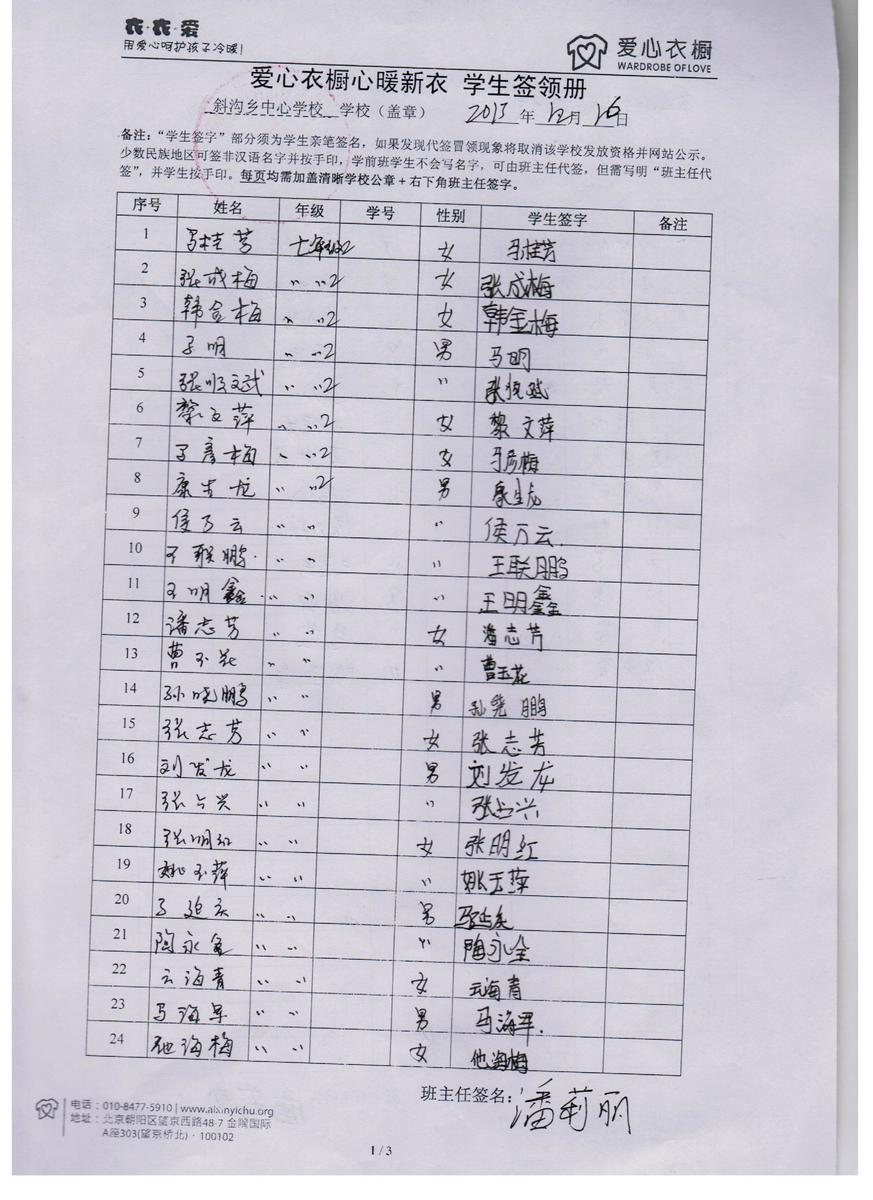 衣·衣·爱
用爱心呵护孩子冷暖!
爱心衣橱
WARDROBE OF LOVE
爱心衣橱心暖新衣 学生签领册
斜沟乡中心学校 学校（盖章） 2015 年 12月 16日
备注：“学生签字”部分须为学生亲笔签名，如果发现代签冒领现象将取消该学校发放资格并网站公示。
少数民族地区可签非汉语名字并按手印，学前班学生不会写名字，可由班主任代签，但需写明“班主任代
签”，并学生按手印。每页均需加盖清晰学校公章+右下角班主任签字。
序号 姓名 年级 学号 性别 学生签字 备注
1 马桂芳 七年级2 女 马桂芳
2 张成梅 〃 〃2 女 张成梅
3 韩金梅 〃 〃2 女 韩金梅
4 马明 〃 〃2 男 马明
5 张 〃 〃2 〃 张
6 黎文萍 〃 〃2 女 黎文萍
7 马彦梅 〃 〃2 女 马彦梅
8 康生龙 〃 〃2 男 康生龙
9 侯万云 〃 〃 〃 侯万云
10 王联鹏 〃 〃 〃 王联鹏
11 王明鑫 〃 〃 〃 王明鑫
12 潘志芳 〃 〃 女 潘志芳
13 曹玉花 〃 〃 〃 曹玉花
14 孙晓鹏 〃 〃 男 孙晓鹏
15 张志芳 〃 〃 女 张志芳
16 刘发龙 〃 〃 男 刘发龙
17 张占兴 〃 〃 〃 张占兴
18 张明红 〃 〃 女 张明红
19 姚玉萍 〃 〃 〃 姚玉萍
20 马 〃 〃 男 马
21 陶永全 〃 〃 〃 陶永全
22 云海青 〃 〃 女 云海青
23 马海军 〃 〃 男 马海军
24 他海梅 〃 〃 女 他海梅
班主任签名： 潘莉丽
电话：010-8477-5910 | www.aixinyichu.org
地址：北京朝阳区望京西路48-7 金隅国际
A座303(望京桥北)·100102
1 / 3